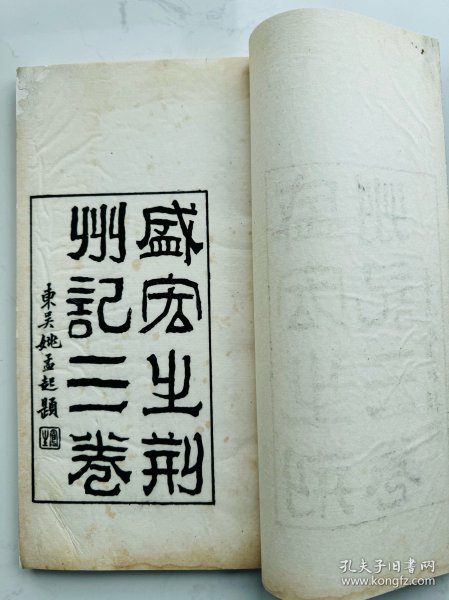 盛宏之荆
州記三卷
東吴姚孟起題
孔夫子旧书网
www.kongfz.com